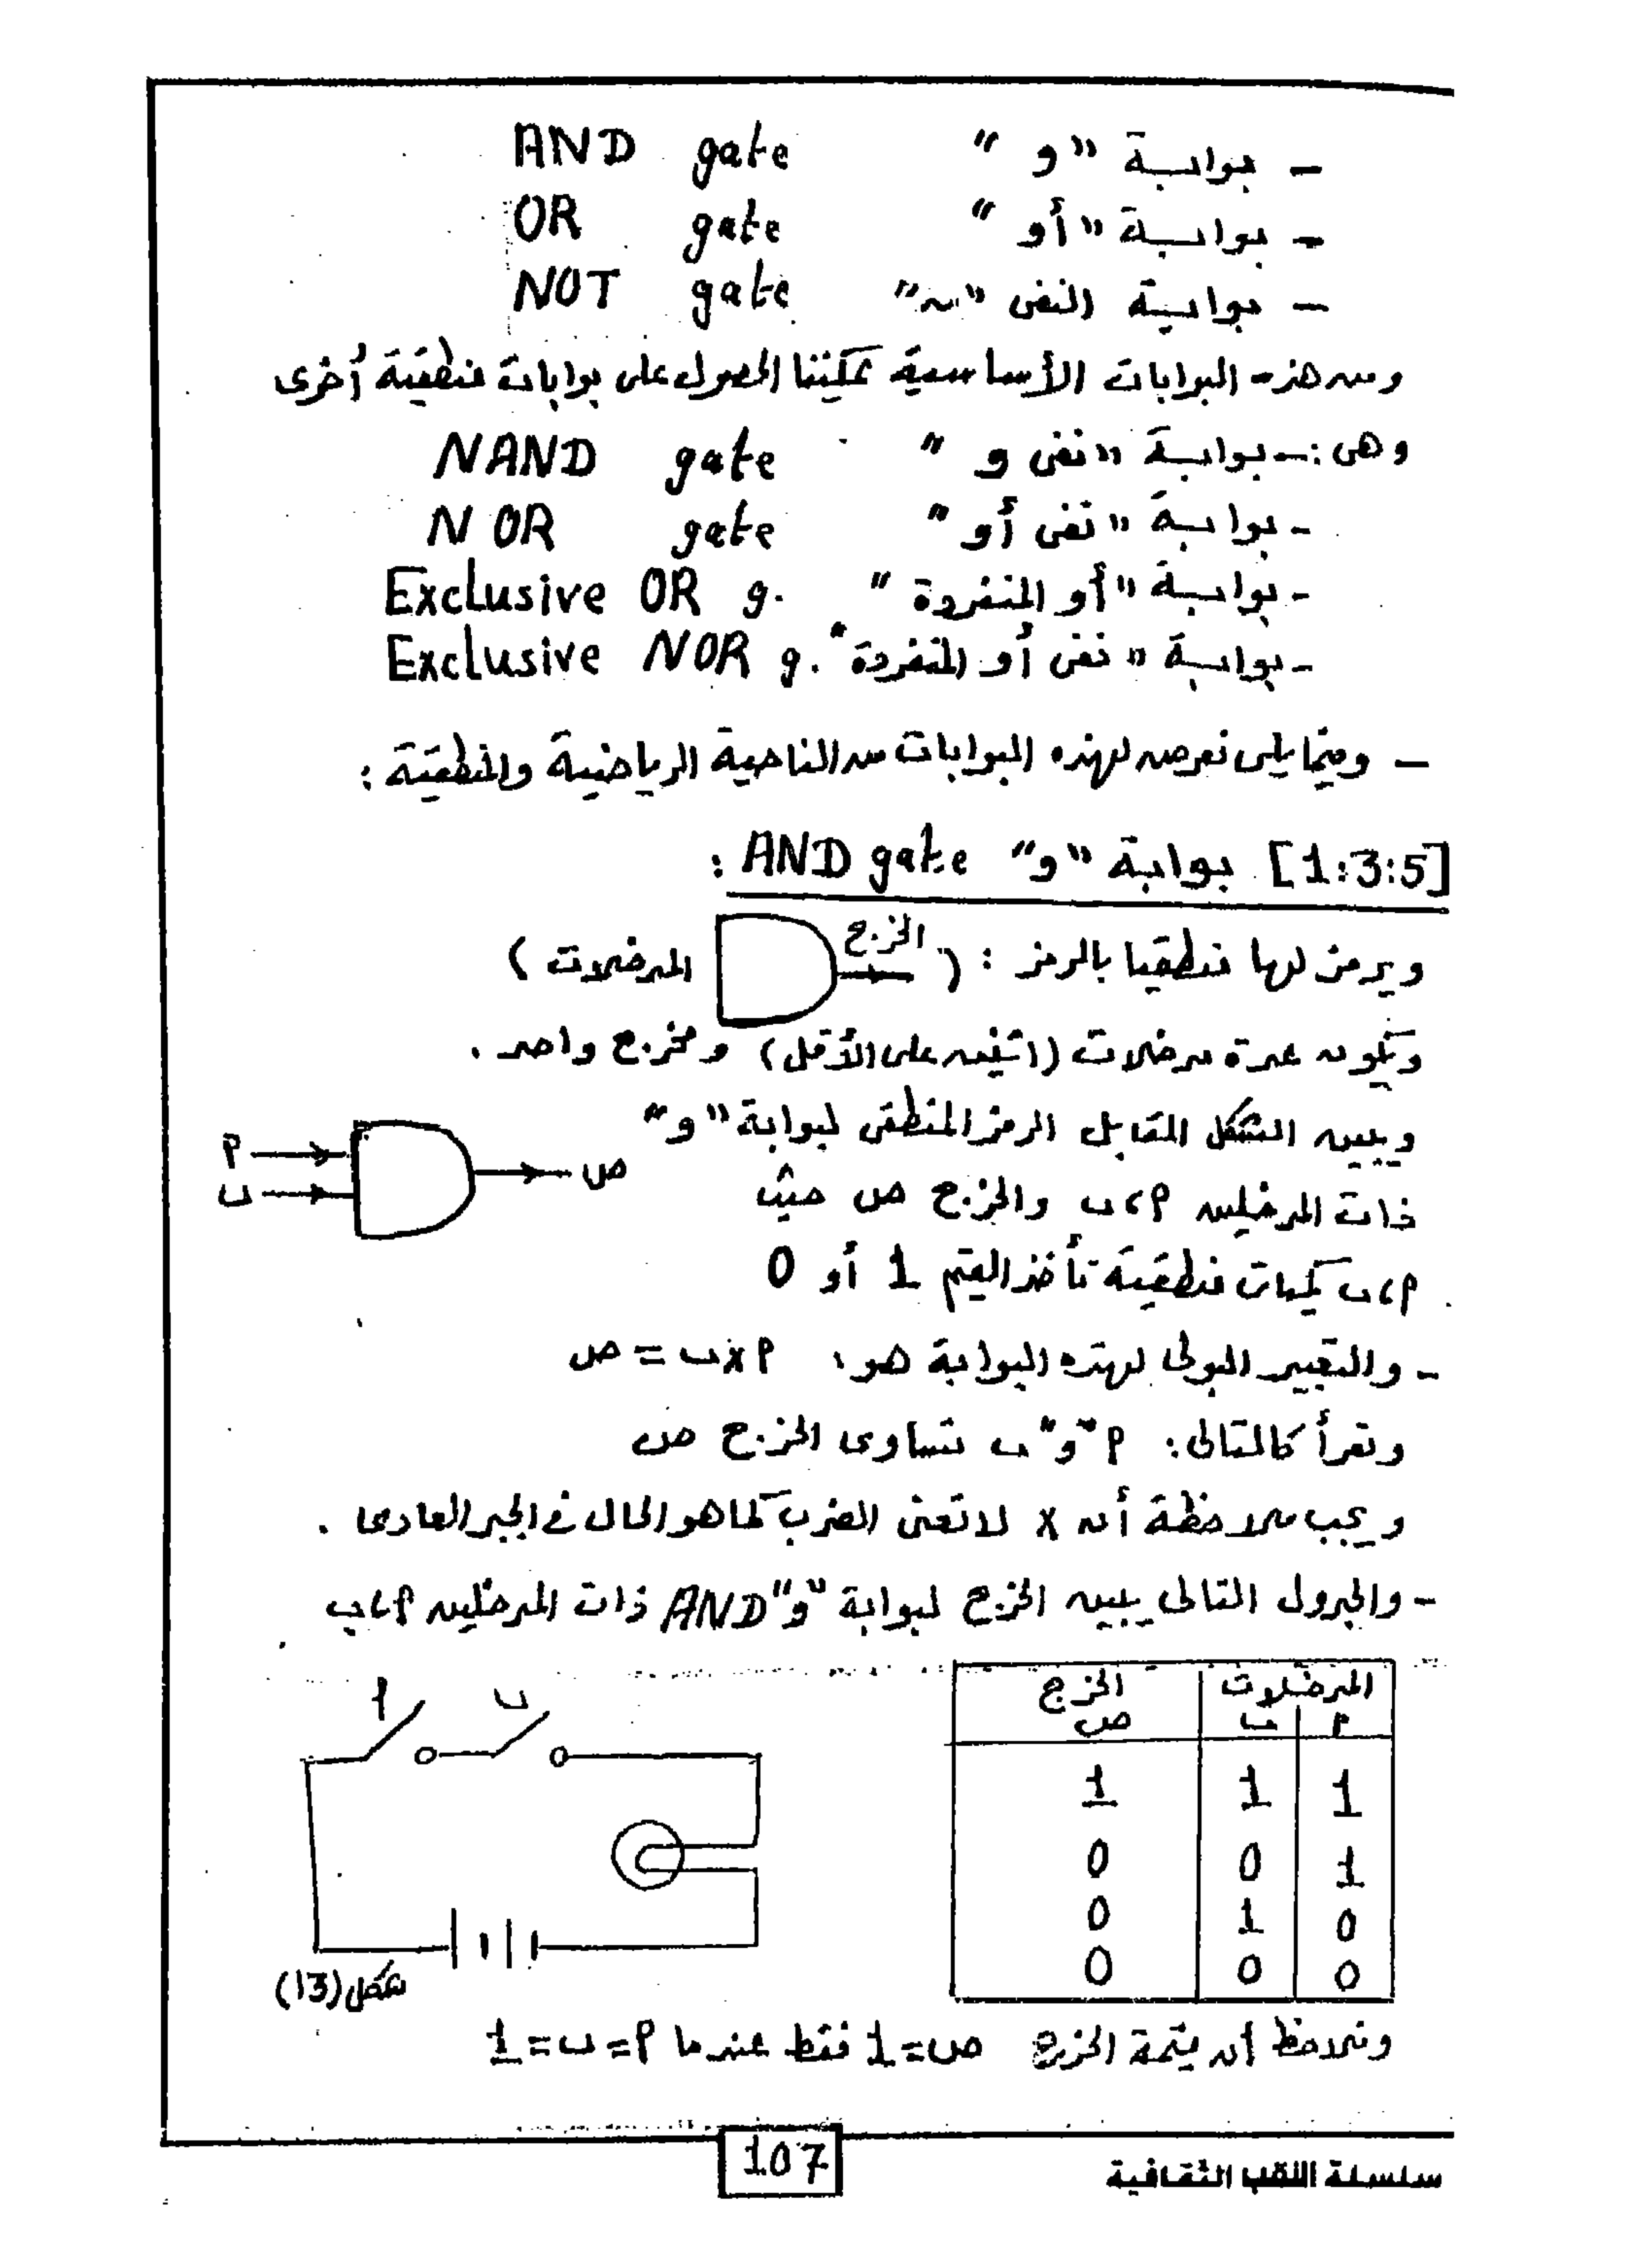 - بوابة "و" AND gate
- بوابة "أو" OR gate
- بوابة النفى "ــہ" NOT gate
ومن هذه البوابات الأساسية يمكننا الحصول على بوابات منطقية أخرى
وهى :- بوابة "نفى و" NAND gate
- بوابة "نفى أو" NOR gate
- بوابة "أو المنفردة" Exclusive OR g.
- بوابة "نفى أو المنفردة" Exclusive NOR g.
- وفيما يلى نعرض لهذه البوابات من الناحية الرياضية والمنطقية :
[1:3:5] بوابة "و" AND gate :
ويرمز لها منطقيا بالرمز : ( الخرج المدخلات )
ويكون عدة مدخلات (اثنين على الأقل) ومخرج واحد .
ويبين الشكل المقابل الرمز المنطقى لبوابة "و"
ذات المدخلين أ، ب والخرج ص حيث
أ، ب كميات منطقية تأخذ القيم 1 أو 0
أ
ب
ص
- والتعبير البولى لهذه البوابة هو، أ x ب = ص
وتقرأ كالتالى : أ "و" ب تساوى الخرج ص
ويجب ملاحظة أن x لا تعنى الضرب كما هو الحال فى الجبر العادى .
- والجدول التالى يبين الخرج لبوابة "و" AND ذات المدخلين أ، ب
المدخلات الخرج
أ ب ص
1 1 1
1 0 0
0 1 0
0 0 0
أ ب
شكل (13)
ونلاحظ أن قيمة الخرج ص = 1 فقط عندما أ = ب = 1
107
سلسلة النقب الثقافية